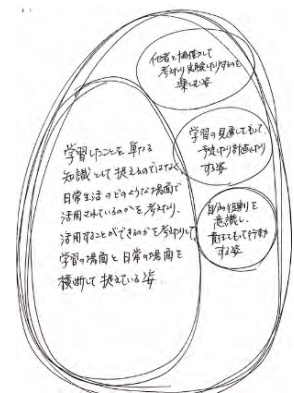 他者と協働して
考えたり実験したりするのを
楽しむ姿
学習の見通しをもって、
予想したり計画したり
する姿
自分の役割を
意識し、
責任をもって行動
する姿
学習したことを単なる
知識として捉えるのではなく
日常生活のどのような場面で
活用されているのかを考えたり、
活用することができるのかを考えたりして
学習の場面と日常の場面を
横断して捉えている姿